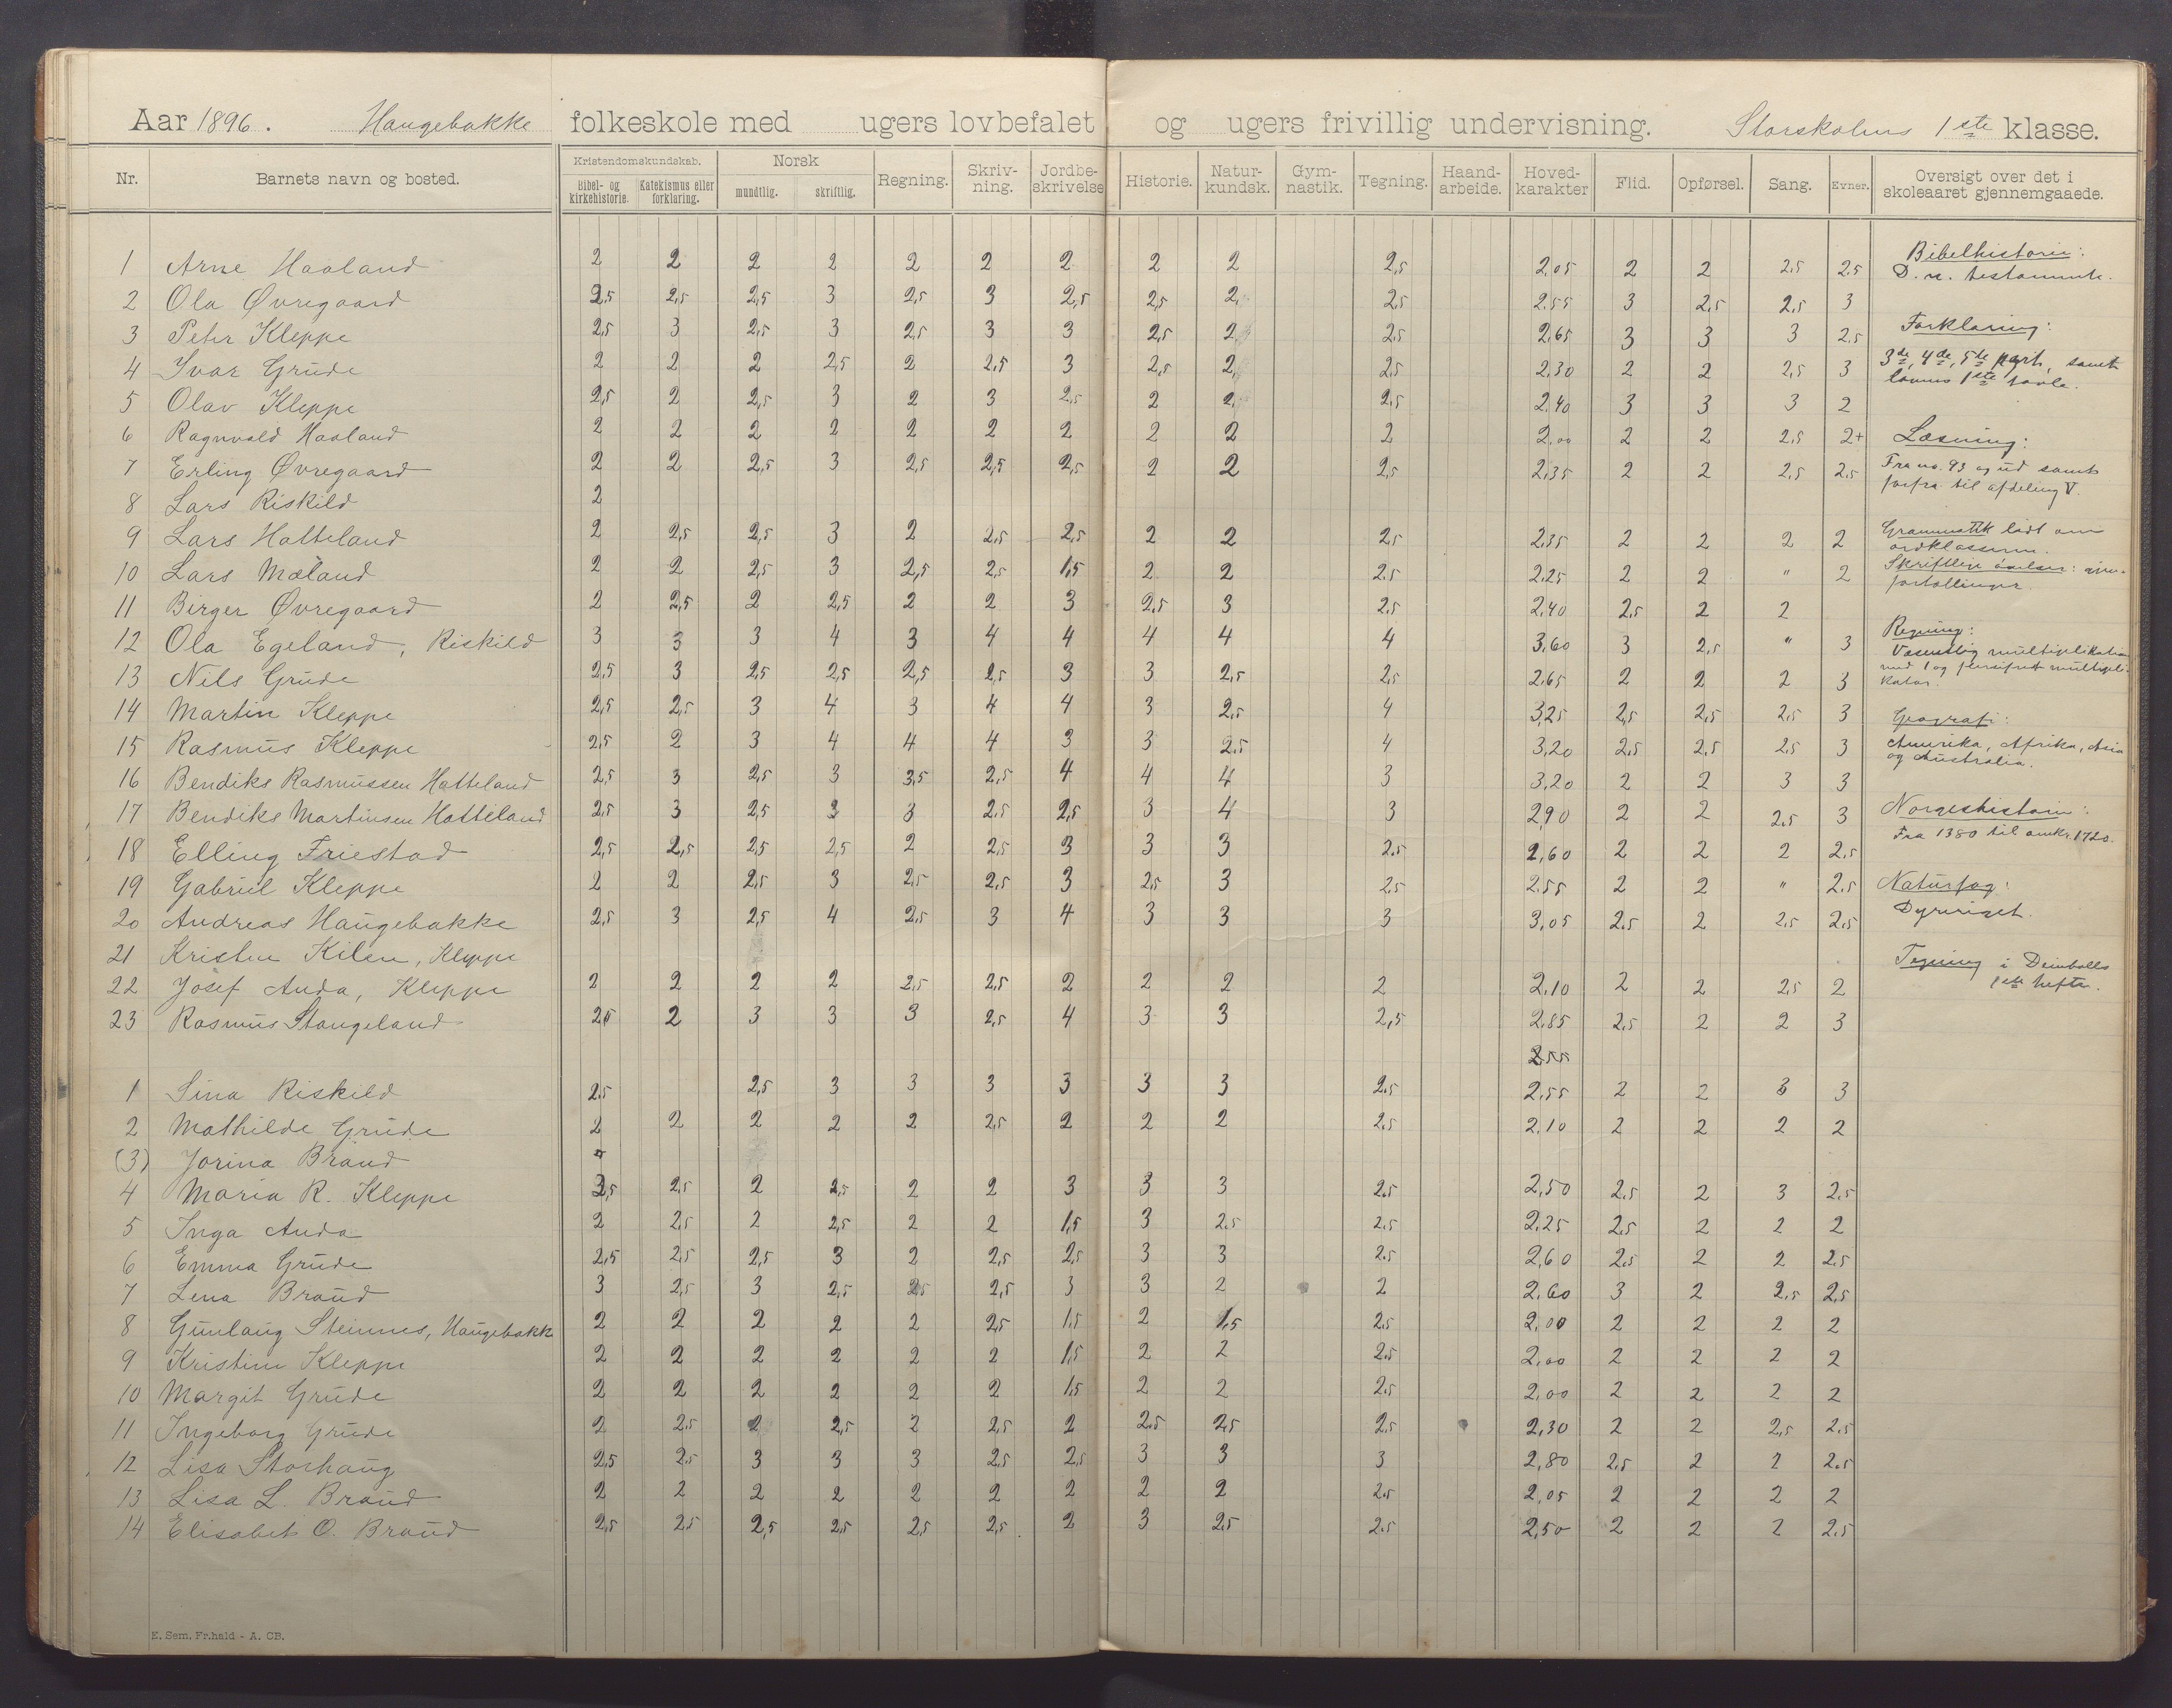 Aar 1896. Haugebakke folkeskole med ugers lovbefalet og ugers frivillig undervisning. Storskolens 1ste klasse.
Nr. Barnets navn og bosted. Kristendomskundskab. Bibel- og kirkehistorie. Katekismus eller forklaring. Norsk mundtlig. skriftlig. Regning. Skriv-ning. Jordbe-skrivelse Historie. Natur-kundsk. Gym-nastik. Tegning. Haand-arbeide. Hoved-karakter Flid. Opførsel. Sang. Evner. Oversigt over det i skoleaaret gjennemgaaede.
1 Arne Haaland 2 2 2 2 2 2 2 2 2 2,5 2,05 2 2 2,5 2,5
2 Ola Øvregaard 2,5 2,5 2,5 3 2,5 3 2,5 2,5 2 2,5 2,55 3 2,5 2,5 3
3 Peter Kleppe 2,5 3 2,5 3 2,5 3 3 2,5 2 2,5 2,65 3 3 3 2,5
4 Ivar Grude 2 2 2 2,5 2 2,5 3 2,5 2 2,5 2,30 2 2 2,5 3
5 Olav Kleppe 2,5 2 2,5 3 2 3 2,5 2 2 2,5 2,40 3 3 3 2
6 Ragnvald Haaland 2 2 2 2 2 2 2 2 2 2 2,00 2 2 2,5 2+
7 Erling Øvregaard 2 2 2,5 3 2,5 2,5 2,5 2 2 2,5 2,35 2 2 2,5 2,5
8 Lars Riskild 2
9 Lars Hatteland 2 2,5 2,5 3 2 2,5 2,5 2 2 2,5 2,35 2 2 2 2
10 Lars Mæland 2 2 2,5 3 2,5 2,5 1,5 2 2 2,5 2,25 2 2 " 2
11 Birger Øvregaard 2 2,5 2 2,5 2 2 3 2,5 3 2,5 2,40 2,5 2 2
12 Ola Egeland, Riskild 3 3 3 4 3 4 4 4 4 4 3,60 3 2,5 " 3
13 Nils Grude 2,5 3 2,5 2,5 2,5 2,5 3 3 2,5 2,5 2,65 2 2 2 3
14 Martin Kleppe 2,5 2,5 3 4 3 4 4 3 2,5 4 3,25 2,5 2,5 2,5 3
15 Rasmus Kleppe 2,5 2 3 4 4 4 3 3 2,5 4 3,20 2,5 2,5 2,5 3
16 Bendiks Rasmussen Hatteland 2,5 3 2,5 3 3,5 2,5 4 4 4 3 3,20 2 2 3 3
17 Bendiks Martinsen Hatteland 2,5 3 2,5 3 3 2,5 2,5 3 4 3 2,90 2 2 2,5 3
18 Elling Friestad 2,5 2,5 2,5 2,5 2 2,5 3 3 3 2,5 2,60 2 2 2 2,5
19 Gabriel Kleppe 2 2 2,5 3 2,5 2,5 3 2,5 3 2,5 2,55 2 2 " 2,5
20 Andreas Haugebakke 2,5 3 2,5 4 2,5 3 4 3 3 3 3,05 2,5 2 2,5 2,5
21 Kristen Kilen, Kleppe
22 Josef Anda, Kleppe 2 2 2 2 2,5 2,5 2 2 2 2 2,10 2 2 2,5 2
23 Rasmus Stangeland 2,5 2 3 3 3 2,5 4 3 3 2,5 2,85 2,5 2 2 3
2,55
1 Sina Riskild 2,5 2,5 3 3 3 3 3 3 2,5 2,55 2 2 3 3
2 Mathilde Grude 2 2 2 2 2 2,5 2 2 2 2,5 2,10 2 2 2 2
(3) Jorina Braud
4 Maria R. Kleppe 2,5 2,5 2 2,5 2 2 3 3 3 2,5 2,50 2,5 2 3 2,5
5 Inga Anda 2 2,5 2 2,5 2 2 1,5 3 2,5 2,5 2,25 2,5 2 2 2
6 Emma Grude 2,5 2,5 2,5 3 2 2,5 2,5 3 3 2,5 2,60 2,5 2 2 2,5
7 Lena Braud 3 2,5 3 2,5 2,5 2,5 3 3 2 2 2,60 3 2 2,5 2,5
8 Gunlaug Steinnes, Haugebakk 2 2 2 2 2 2,5 1,5 2 1,5 2,5 2,00 2 2 2 2
9 Kristine Kleppe 2 2 2 2 2 2 1,5 2 2 2,5 2,00 2 2 2 2
10 Margit Grude 2 2 2 2 2 2 1,5 2 2 2,5 2,00 2 2 2 2
11 Ingeborg Grude 2 2,5 2 2,5 2 2,5 2 2,5 2,5 2,5 2,30 2 2 2,5 2,5
12 Lisa Storhaug 2,5 2,5 3 3 3 2,5 2,5 3 3 3 2,80 2,5 2 2 2,5
13 Lisa L. Braud 2 2 2 2 2 2 2 2 2 2,5 2,05 2 2 2 2
14 Elisabet O. Braud 2,5 2,5 2,5 2,5 2,5 2,5 2 3 2,5 2,5 2,50 2 2 2 2,5
Bibelhistorie:
D. n. testamente.
Forklaring:
3de, 4de, 5te part, samt
lovens 1ste tavle.
Læsning:
Fra no. 93 og ud samt
forfra til afdeling V.
Grammatik lidt om
ordklasserne.
Skriftlige øvelser:
fortællinger.
Regning:
Væsentlig multiplikation
med 1 og flersifret multipli-
kator.
Geografi:
Amerika, Afrika, Asia
og Australia.
Norgeshistorie:
Fra 1380 til omkr. 1720.
Naturfag:
Dyreriget.
Tegning i Deinbolls
1ste hefte.
E. Sem. Fr.hald - A. CB.